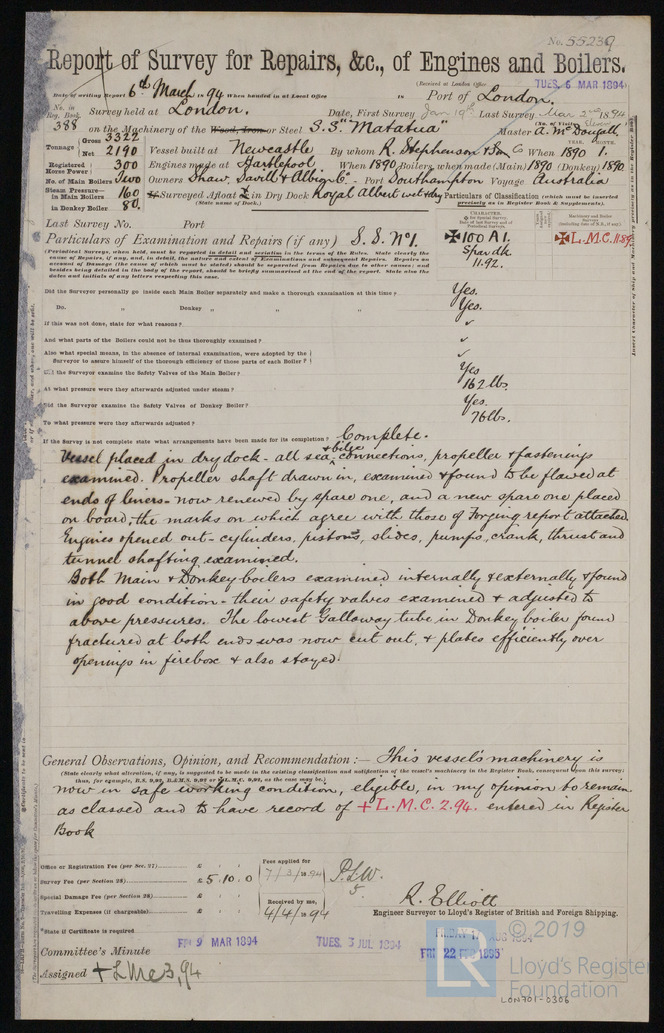 No. 55239
Report of Survey for Repairs, &c., of Engines and Boilers.
(Received at London Office TUES. 6 MAR 1894)
Date of writing Report 6th March 1894 When handed in at Local Office to Port of London.
No. in Reg. Book. 388 Survey held at London. Date, First Survey Jan 19th Last Survey Mar 2nd 1894
(No. of Visits)
on the Machinery of the Wood, Iron or Steel S.S. "Matatua" Master A. McDougall
Tonnage Gross 3322 Net 2190 Vessel built at Newcastle By whom R. Stephenson & Son Co When 1890 YEAR. MONTH. 1.
Registered Horse Power 300 Engines made at Hartlepool When 1890 Boilers, when made (Main) 1890 (Donkey) 1890
No. of Main Boilers Two Owners Shaw, Savill & Albion Co. Port Southampton Voyage Australia
Steam Pressure in Main Boilers 160 in Donkey Boiler 80. If Surveyed Afloat or in Dry Dock Royal Albert wet & dry
(State name of Dock.)
Particulars of Classification (which must be inserted precisely as in Register Book & Supplements).
Last Survey No. Port
Particulars of Examination and Repairs (if any) S.S. No 1.
CHARACTER.
✠100A1.
Spar dk.
11.92.
Machinery and Boilers
✠L.M.C. 11.89
Did the Surveyor personally go inside each Main Boiler separately and make a thorough examination at this time? Yes.
Do. " Donkey " " " Yes.
If this was not done, state for what reasons? ✓
And what parts of the Boilers could not be thus thoroughly examined? ✓
Also what special means, in the absence of internal examination, were adopted by the Surveyor to assure himself of the thorough efficiency of those parts of each Boiler? ✓
Did the Surveyor examine the Safety Valves of the Main Boiler? Yes
At what pressure were they afterwards adjusted under steam? 162 lbs.
Did the Surveyor examine the Safety Valves of Donkey Boiler? Yes.
To what pressure were they afterwards adjusted? 76 lbs.
If the Survey is not complete state what arrangements have been made for its completion? Complete.
Vessel placed in dry dock - all sea & bilge connections, propeller & fastenings
examined. Propeller shaft drawn in, examined & found to be flawed at
ends of liners - now renewed by spare one, and a new spare one placed
on board, the marks on which agree with those of Forging report attached.
Engines opened out - cylinders, pistons, slides, pumps, crank, thrust and
tunnel shafting examined.
Both Main & Donkey boilers examined internally & externally & found
in good condition - their safety valves examined & adjusted to
above pressures. The lowest Galloway tube in Donkey boiler found
fractured at both ends was now cut out, & plates efficiently over
openings in firebox & also stayed.
General Observations, Opinion, and Recommendation :— This vessel's machinery is
(State clearly what alteration, if any, is suggested to be made in the existing classification and notification of the vessel's machinery in the Register Book, consequent upon this survey:
thus, for example, B.S. 9,92, B.&M.S. 9,92 or ✠L.M.C. 9,92, as the case may be.)
now in safe working condition, eligible, in my opinion to remain
as classed and to have record of +L.M.C. 2.94. entered in Register
Book
Office or Registration Fee (per Sec. 27) £ : :
Survey Fee (per Section 28) £ 5.10.0
Special Damage Fee (per Section 28) £ : :
Travelling Expenses (if chargeable) £ : :
Fees applied for
7/3/1894
Received by me,
4/4/1894
R. Elliott
Engineer Surveyor to Lloyd's Register of British and Foreign Shipping.
*State if Certificate is required
Committee's Minute FRI 9 MAR 1894 TUES. 3 JUL 1894 FRI 22 FEB 1895
Assigned + LMC 3,94
© 2019
Lloyd's Register
Foundation
LON701-0306